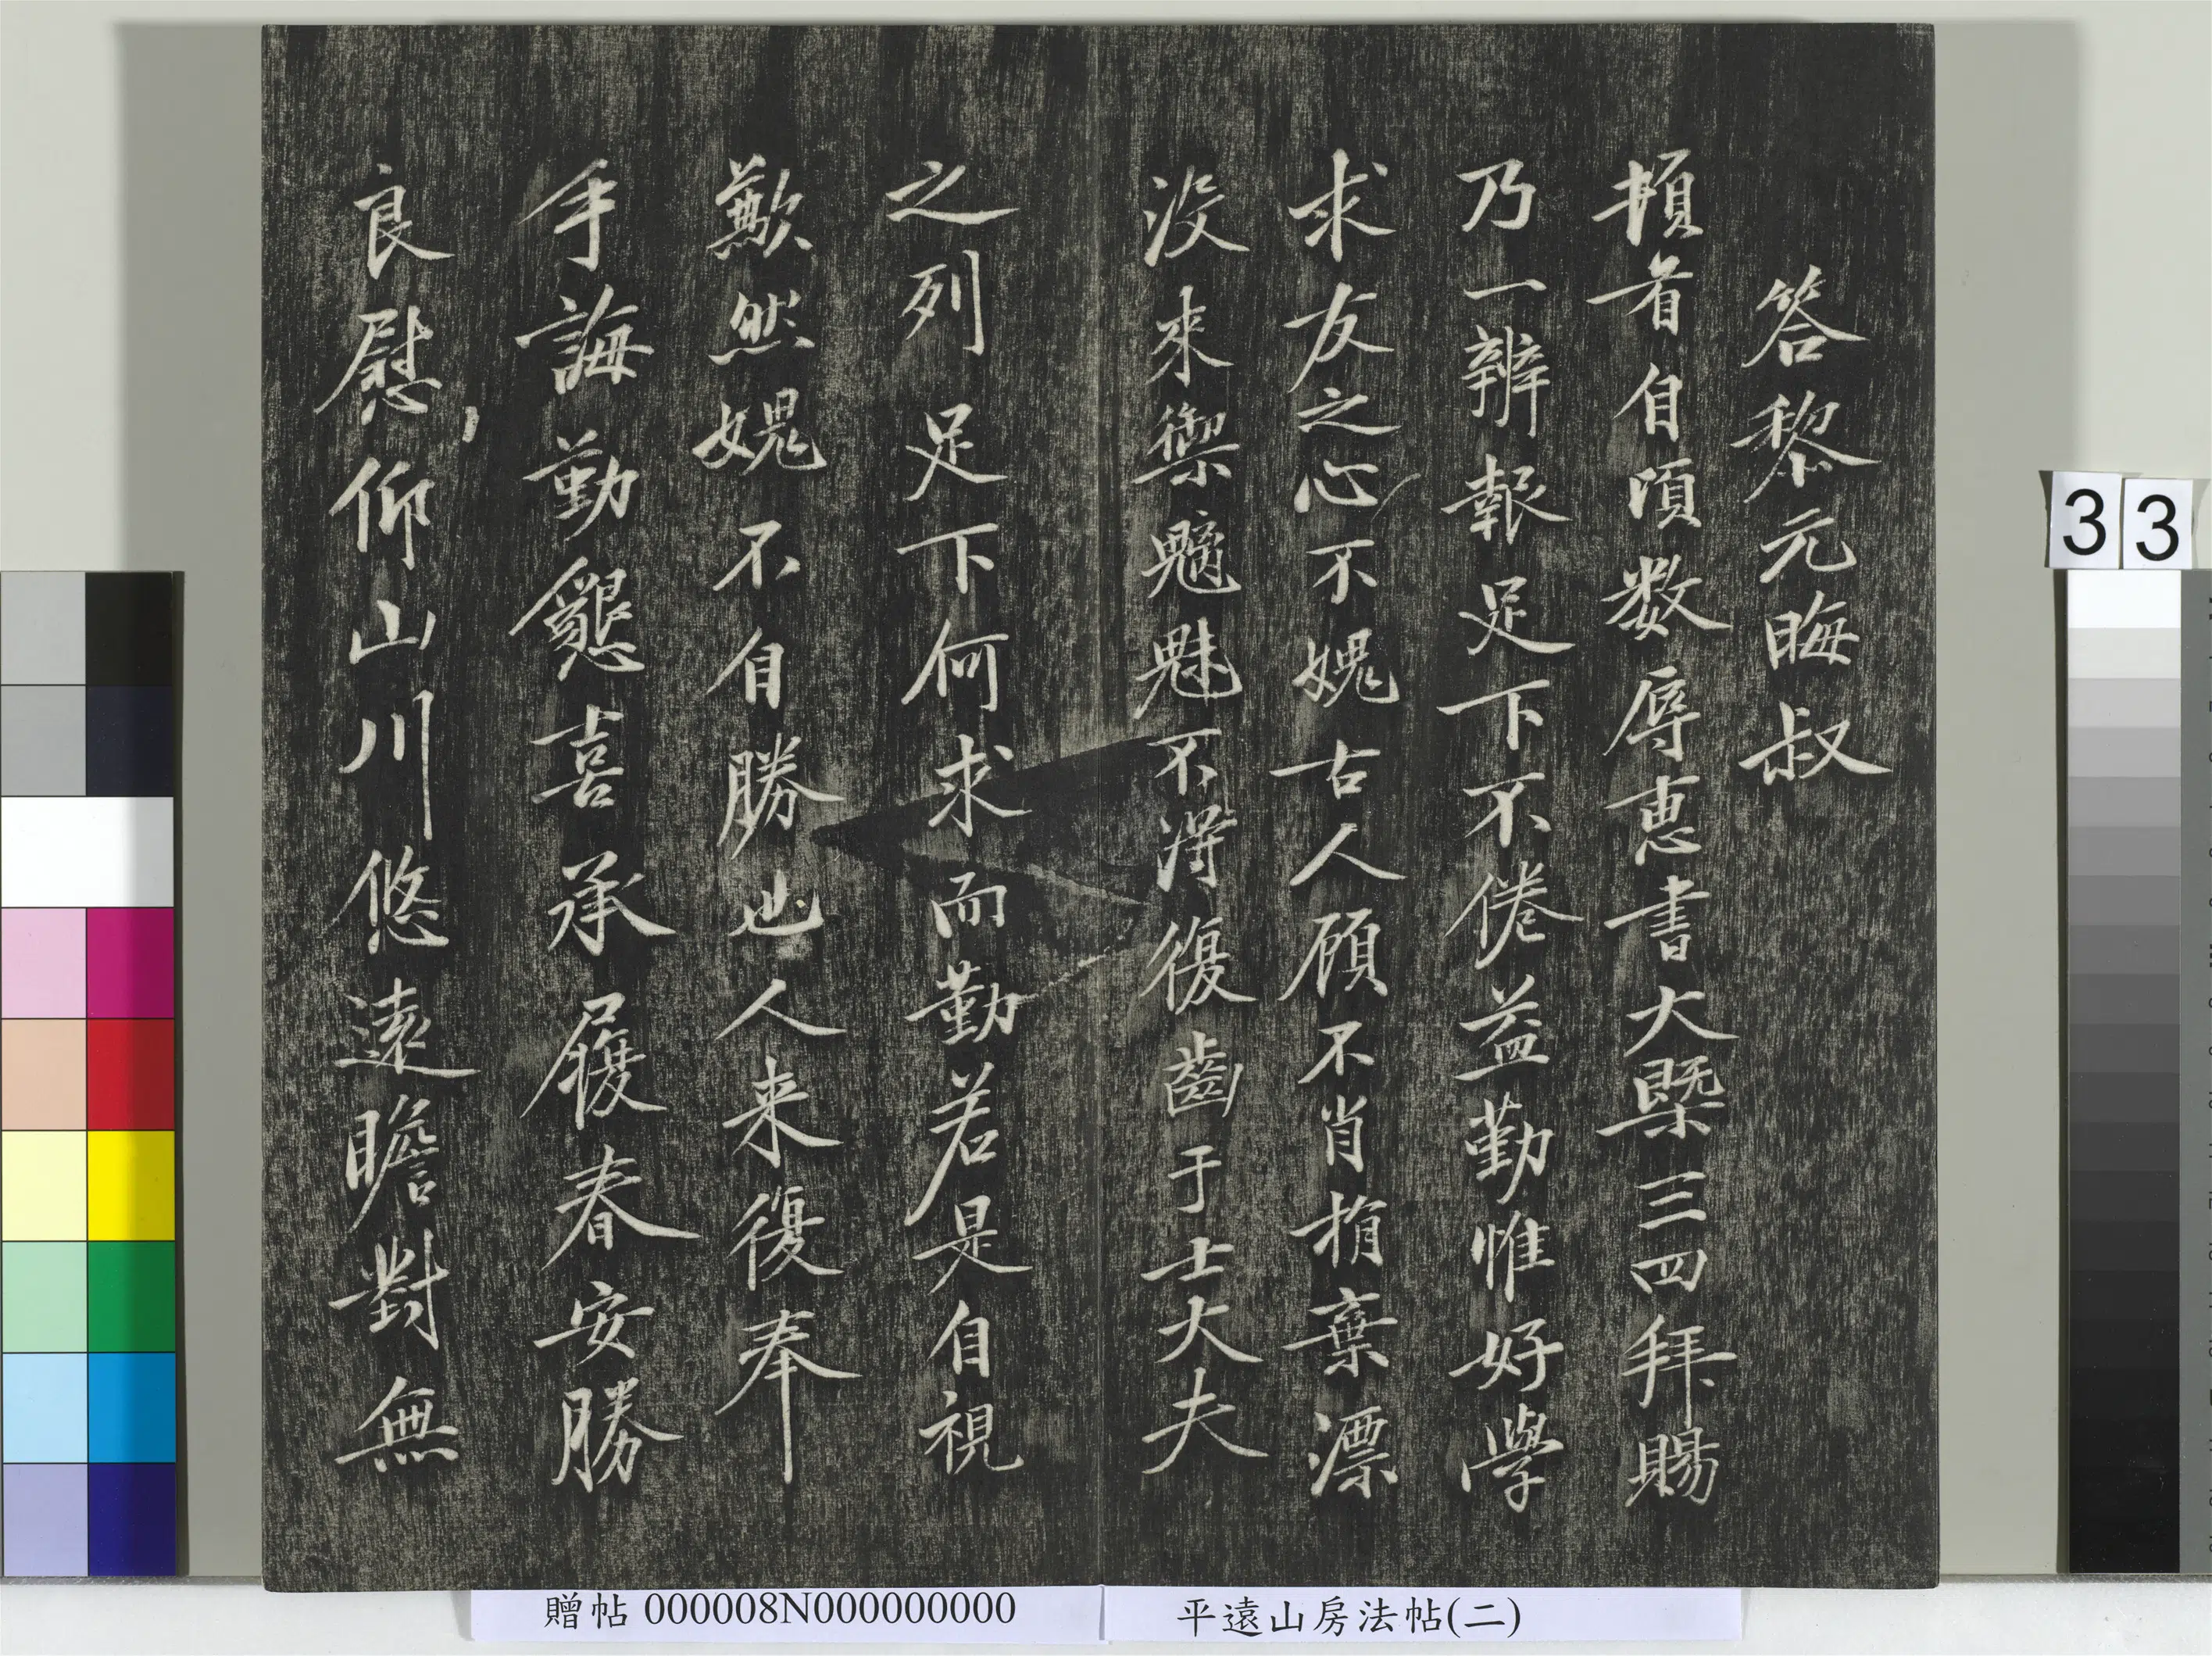 答黎元晦叔
頓首自頃数辱恵書大槩三四拜賜
乃一辨報足下不倦益勤惟好學
求友之心不媿古人顧不肖捐棄漂
没來禦魑魅不淂復齒于士大夫
之列足下何求而勤若是自視
歉然媿不自勝也人来復奉
手誨勤懇喜承履春安勝
良慰仰山川悠遠瞻對無
33
贈帖 000008N000000000
平遠山房法帖(二)